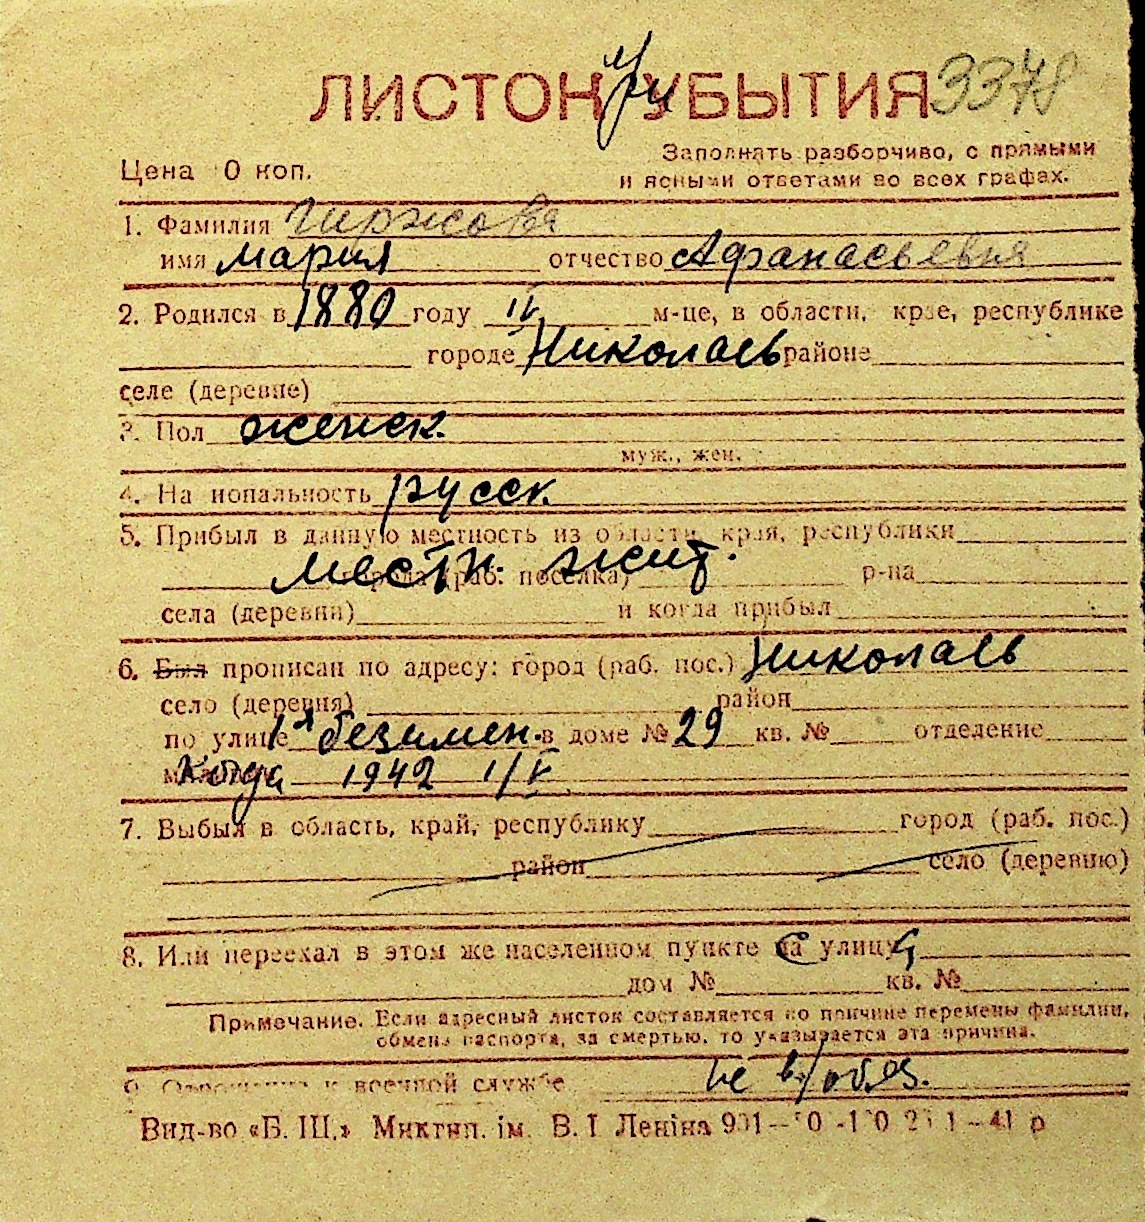 ЛИСТОК при УБЫТИЯ 3378
Цена 0 коп.
Заполнять разборчиво, с прямыми
и ясными ответами во всех графах.
1. Фамилия Гиржова
имя Мария отчество Афанасьевна
2. Родился в 1880 году IV м-це, в области, крае, республике
городе Николаев районе
селе (деревне)
3. Пол женск.
муж., жен.
4. Национальность русск.
5. Прибыл в данную местность из области, края, республики
города (раб. поселка) р-на
местн. жит.
села (деревни) и когда прибыл
6. Был прописан по адресу: город (раб. пос.) Николаев
село (деревня) район
по улице 1я безимен. в доме № 29 кв. № отделение
когда 1942 1/V
7. Выбыл в область, край, республику город (раб. пос.)
район село (деревню)
8. Или переехал в этом же населенном пункте на улицу
дом № кв. №
Примечание. Если адресный листок составляется по причине перемены фамилии,
обмена паспорта, за смертью, то указывается эта причина.
9. Отношение к военной службе не в/обяз.
Вид-во «Б. Ш.» Миктип. ім. В. І Леніна